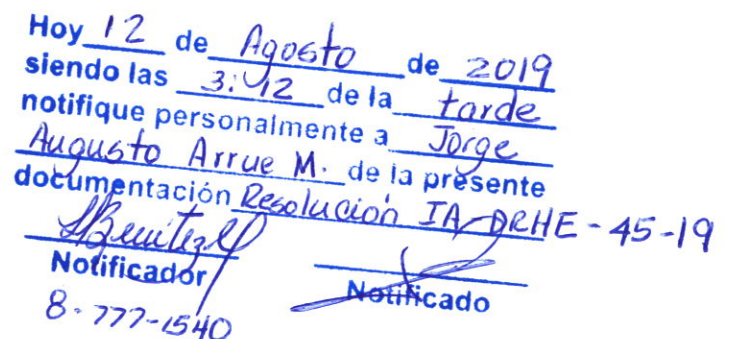 Hoy 12 de Agosto de 2019
siendo las 3:12 de la tarde
notifique personalmente a Jorge
Augusto Arrue M. de la presente
documentación Resolución IA-DRHE-45-19
Notificador
Notificado
8-777-1540